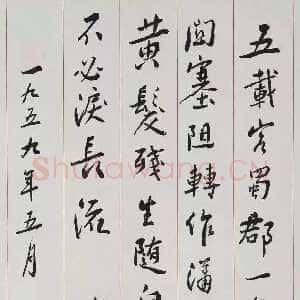 五載客蜀郡一
關塞阻轉作瀟
黃髮殘生隨白
不必淚長流
一九五九年五月
Shufawang.CN